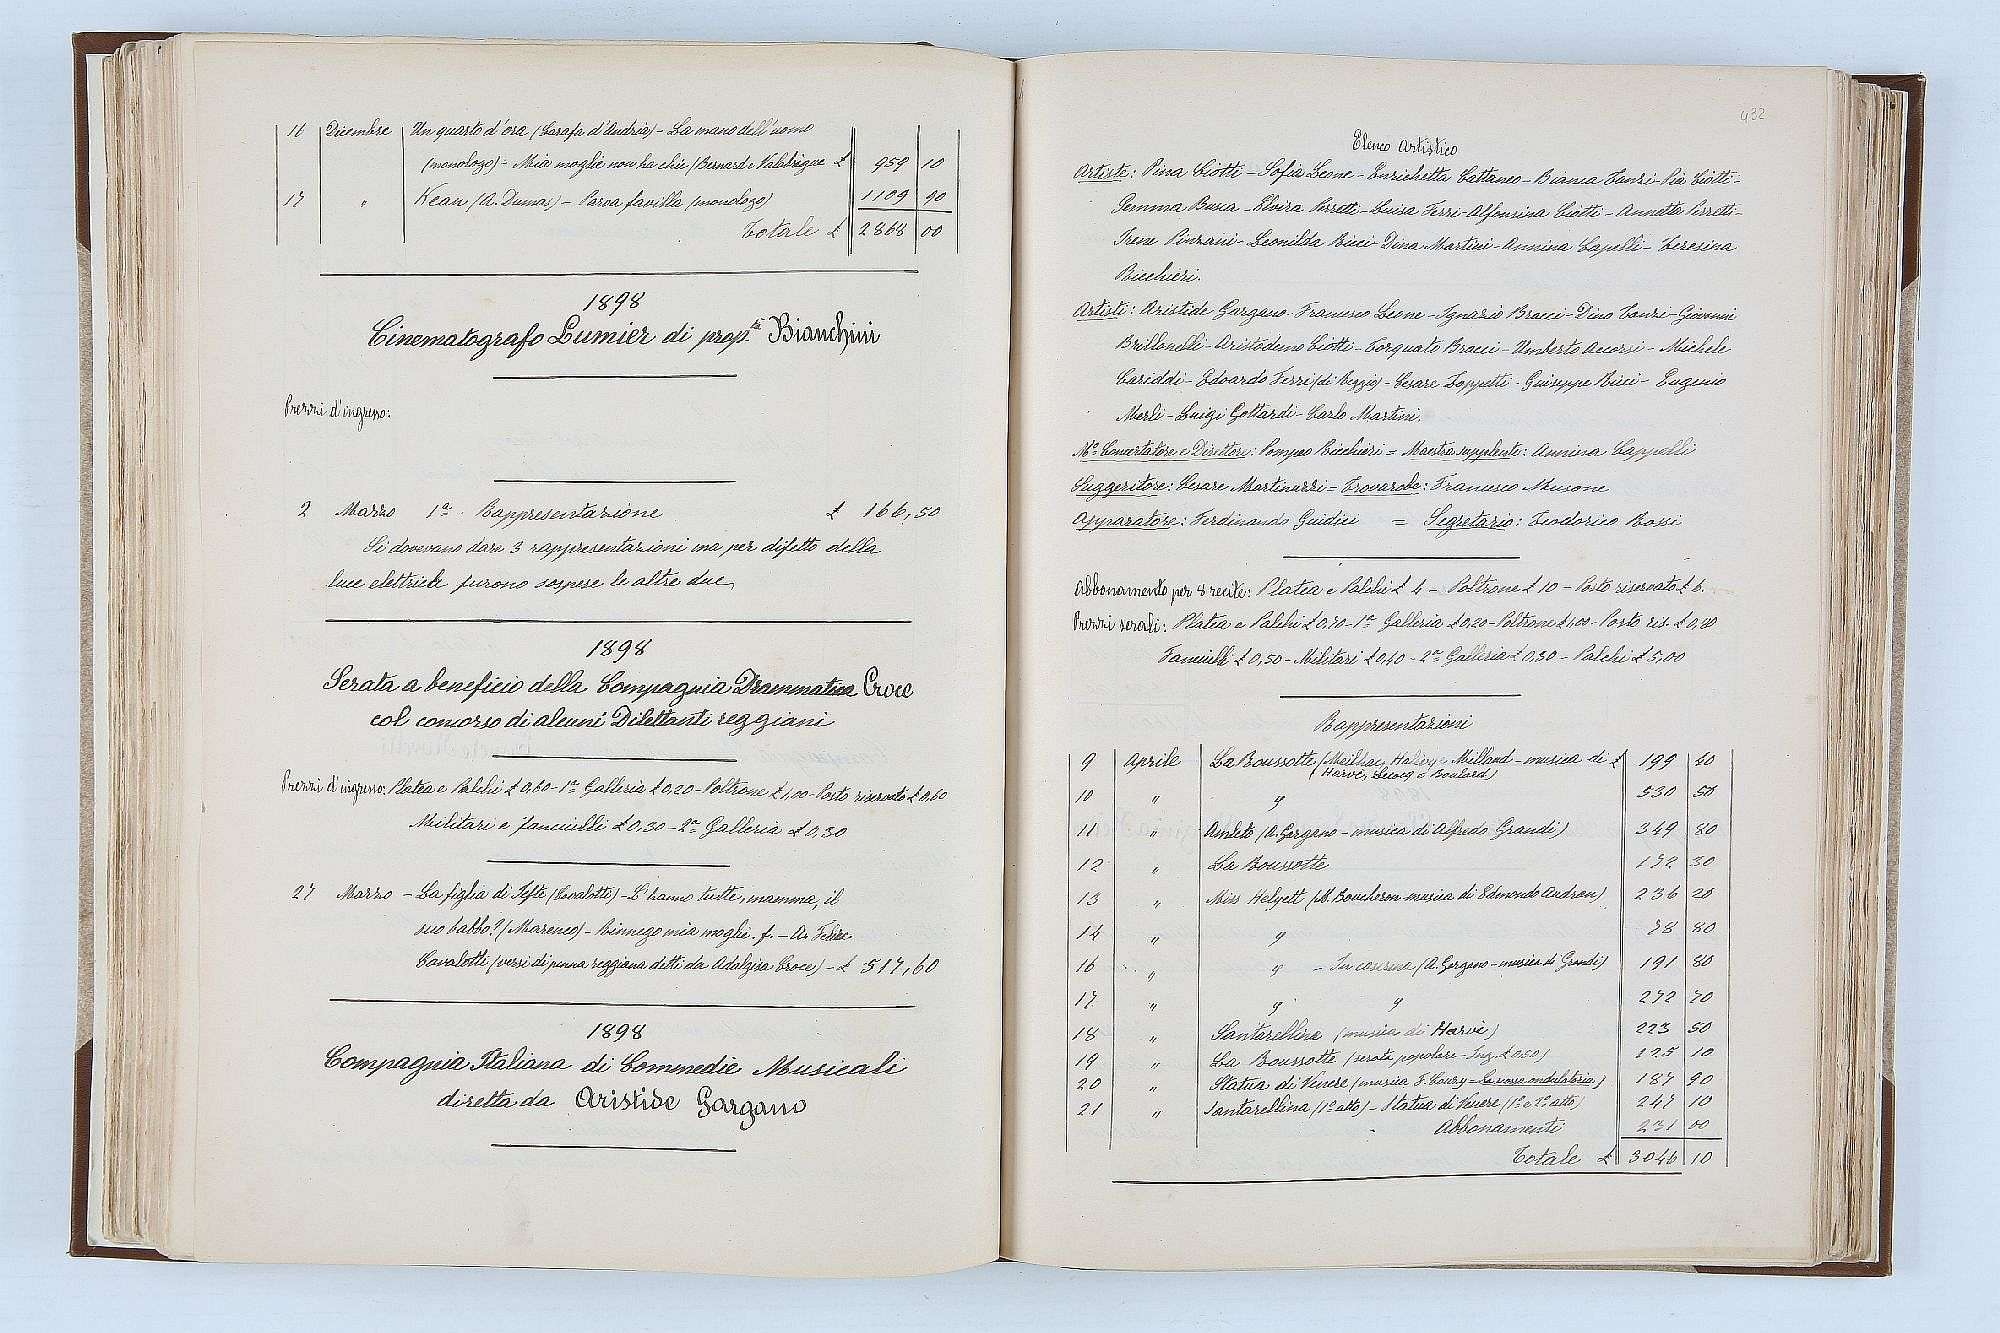 16 Dicembre Un quarto d'ora (Carafa d'Andria) - La mano dell'uomo
(monologo) - Mia moglie non ha chic (Bernard e Valabrigue £ 959 10
17 " Kean (A. Dumas) - Parva favilla (monologo) 1109 90
Totale £ 2868 00
1898
Cinematografo Lumier di prop.tà Bianchini
Prezzi d'ingresso:
2 Marzo 1a. Rappresentazione £ 166,50
Si dovevano dare 3 rappresentazioni ma per difetto della
luce elettrica furono sospese le altre due
1898
Serata a beneficio della Compagnia Drammatica Croce
col concorso di alcuni Dilettanti reggiani
Prezzi d'ingresso: Platea e Palchi £ 0,60 - 1a Galleria £ 0,20 - Poltrone £ 1,00 - Posto riservato £ 0,60
Militari e fanciulli £ 0,30 - 2a Galleria £ 0,30
27 Marzo - La figlia di Jefte (Cavalotti) - L'hanno tutte, mamma, il
suo babbo? (Marenco) - Rinnego mia moglie. f. - A Felice
Cavalotti (versi di penna reggiana detti da Adalgisa Croce) - £ 517,60
1898
Compagnia Italiana di Commedie Musicali
diretta da Aristide Gargano
432
Elenco Artistico
Artiste: Pina Ciotti - Sofia Leone - Enrichetta Cattaneo - Bianca Tanzi - Pia Ciotti -
Gemma Busia - Elvira Perretti - Luisa Ferri - Alfonsina Ciotti - Annetta Perretti -
Irene Pinzani - Leonilda Ricci - Dina Martini - Annina Capelli - Teresina
Bicchieri.
Artisti: Aristide Gargano - Francesco Leone - Ignazio Bracci - Dino Tanzi - Giovanni
Brillonelli - Aristodemo Ciotti - Torquato Bracci - Umberto Accorsi - Michele
Cariddi - Edoardo Ferri (di Reggio) - Cesare Foppetti - Giuseppe Ricci - Eugenio
Merli - Luigi Gottardi - Carlo Martini.
Mo. Concertatore e Direttore: Pompeo Ricchieri = Maestra supplente: Annina Cappelli
Suggeritore: Cesare Martinuzzi = Trovarobe: Francesco Musone
Apparatore: Ferdinando Guidici = Segretario: Teodorico Rossi
Abbonamento per 8 recite: Platea e Palchi £ 4 - Poltrone £ 10 - Posto riservato £ 6.
Prezzi serali: Platea e Palchi £ 0,70 - 1a Galleria £ 0,20 - Poltrone £ 1,00 - Posto ris. £ 0,80
Fanciulli £ 0,50 - Militari £ 0,40 - 2a Galleria £ 0,30 - Palchi £ 5,00
Rappresentazioni
9 Aprile La Boussotte (Meilhac, Halevy e Milland - musica di £ 199 40
(Harvè, Lecoq e Boulard)
10 " " 530 50
11 " Amleto (A. Gargano - musica di Alfredo Grandi) 349 80
12 " La Boussotte 172 30
13 " Miss Helyett (M. Boucheron musica di Edmondo Audran) 236 20
14 " " 78 80
16 " " - In caserma (A. Gargano - musica di Grandi) 191 80
17 " " " 272 70
18 " Santarellina (musica di Harvè) 223 50
19 " La Boussotte (serata popolare - Ing. £ 0,50) 125 10
20 " Statua di Venere (musica F. Coury - La voce ondulatoria) 187 90
21 " Santarellina (1o atto) - Statua di Venere (1o e 2o atto) 247 10
Abbonamenti 231 00
Totale £ 3046 10